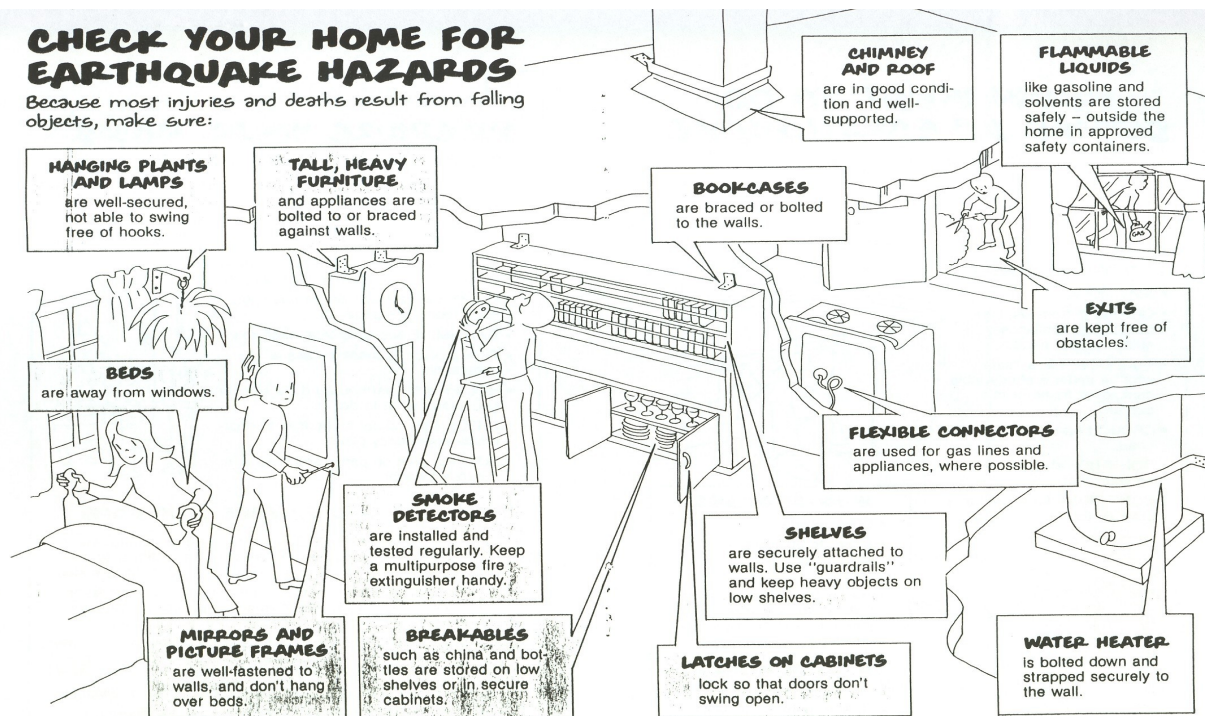 CHECK YOUR HOME FOR
EARTHQUAKE HAZARDS
Because most injuries and deaths result from falling
objects, make sure:
HANGING PLANTS
AND LAMPS
are well-secured,
not able to swing
free of hooks.
TALL, HEAVY
FURNITURE
and appliances are
bolted to or braced
against walls.
BOOKCASES
are braced or bolted
to the walls.
CHIMNEY
AND ROOF
are in good condi-
tion and well-
supported.
FLAMMABLE
LIQUIDS
like gasoline and
solvents are stored
safely – outside the
home in approved
safety containers.
GAS
EXITS
are kept free of
obstacles.
BEDS
are away from windows.
FLEXIBLE CONNECTORS
are used for gas lines and
appliances, where possible.
SMOKE
DETECTORS
are installed and
tested regularly. Keep
a multipurpose fire
extinguisher handy.
SHELVES
are securely attached to
walls. Use "guardrails"
and keep heavy objects on
low shelves.
MIRRORS AND
PICTURE FRAMES
are well-fastened to
walls, and don't hang
over beds.
BREAKABLES
such as china and bot-
tles are stored on low
shelves or in secure
cabinets.
LATCHES ON CABINETS
lock so that doors don't
swing open.
WATER HEATER
is bolted down and
strapped securely to
the wall.